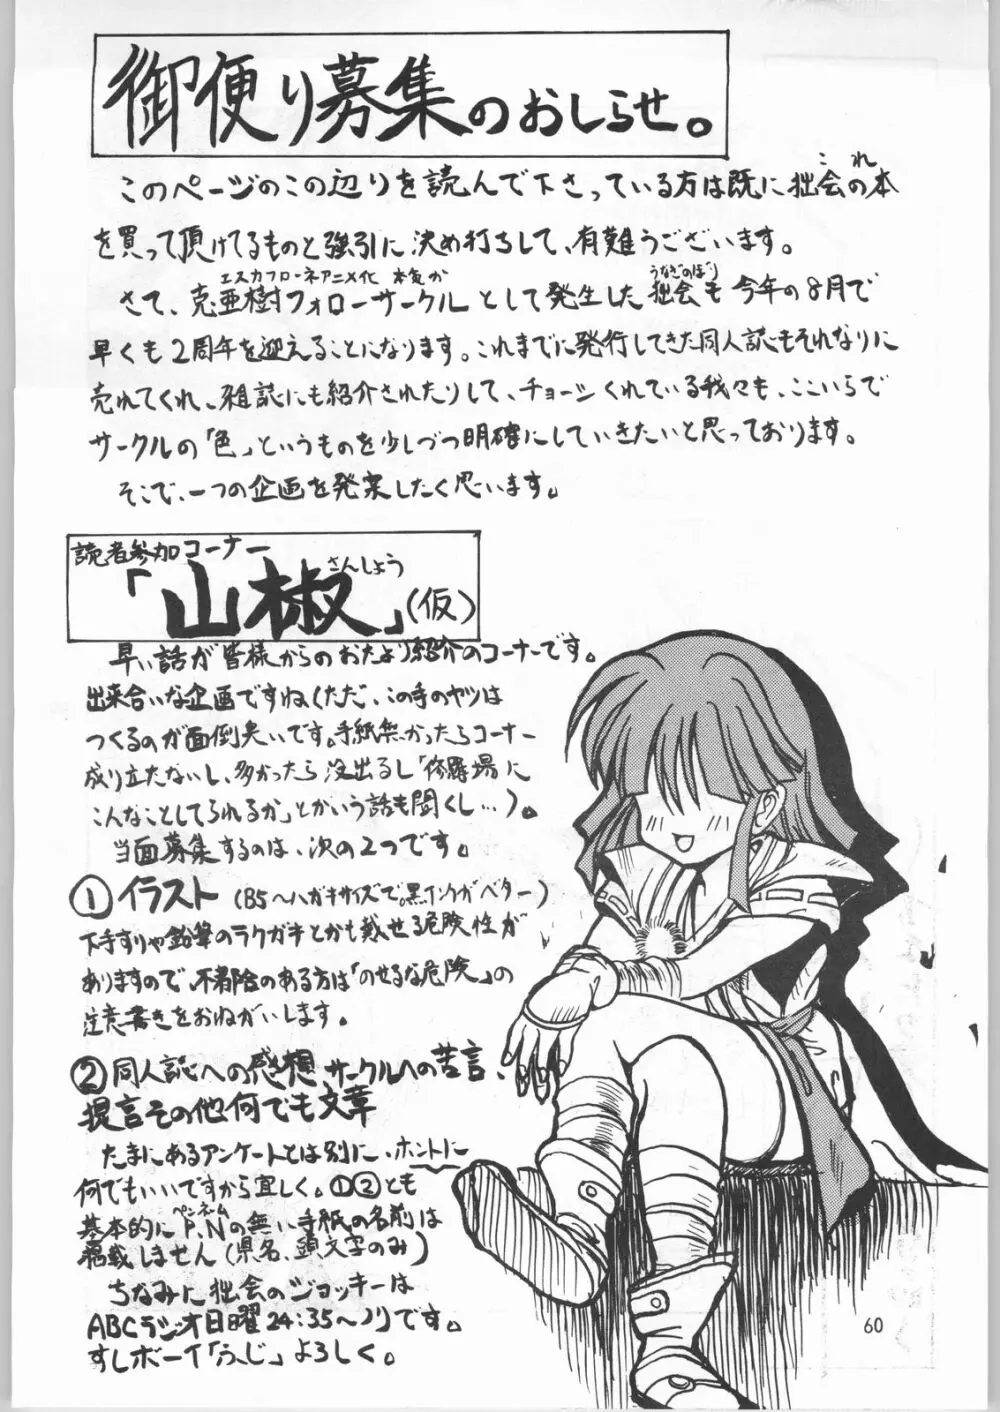 御便り募集のおしらせ。
このページのこの辺りを読んで下さっている方は既に拙会の本
これ
を買って頂けてるものと強引に決め打ちして、有難うございます。
エスカフローネアニメ化
うなぎのぼり
さて、克亜樹フォローサークルとして発生した拙会も今年の8月で
早くも2周年を迎えることになります。これまでに発行してきた同人誌もそれなりに
売れてくれ、雑誌にも紹介されたりして、チョーシくれている我々も、ここいらで
サークルの「色」というものを少しづつ明確にしていきたいと思っております。
そこで、一つの企画を発案したく思います。
読者参加コーナー
さんしょう
「山椒」(仮)
早い話が皆様からのおたより紹介のコーナーです。
出来合いな企画ですね(ただ、この手のヤツは
つくるのが面倒臭いです。手紙無かったらコーナー
成り立たないし、多かったら没出るし「修羅場に
こんなことしてられるか」とかいう話も聞くし…)。
当面募集するのは、次の2つです。
① イラスト (B5〜ハガキサイズで。黒インクがベター)
下手すりゃ鉛筆のラクガキとかも載せる危険性が
ありますので、不都合のある方は「のせるな危険」の
注意書きをおねがいします。
② 同人誌への感想 サークルへの苦言、
提言その他何でも文章
たまにあるアンケートとは別に、ホントに
何でもいいですから宜しく。①②とも
ペンネーム
基本的にP.Nの無い手紙の名前は
掲載しません(県名、頭文字のみ)
ちなみに拙会のジョッキーは
ABCラジオ日曜24:35〜ノリです。
すしボーイ「ふじ」よろしく。
60